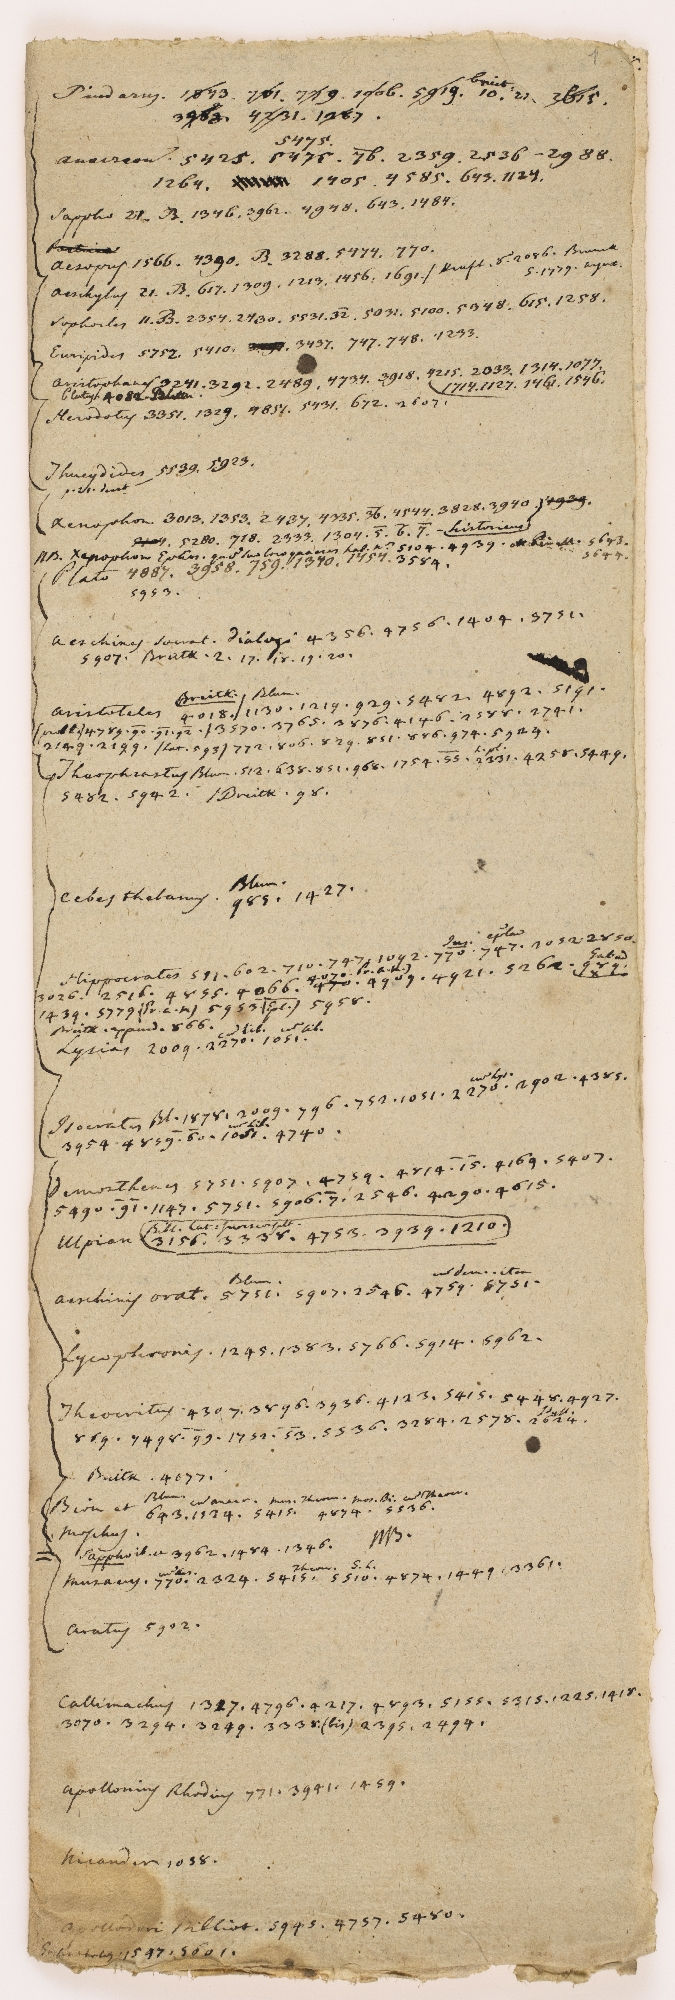 1
Pindarus. 1843. 761. 779. 1906. 5919. Breit. 10. 21. 3615.
3963. 4731. 1267.
5475.
Anacreon. 5425. 5475. 76. 2359. 2536 - 2988.
1264. 1405. 4585. 643. 1124.
Sappho 21. B. 1346. 3962. 4948. 643. 1484.
Aesopus 1566. 4390. B. 3288. 5474. 770.
Aeschylus 21. B. 617. 1309. 1213. 1456. 1691. / Kraft. 8. 2086. Brunck
5. 1779.
Sophocles 11. B. 2354. 2430. 5531. 32. 5031. 5100. 5348. 615. 1258.
Euripides 5752. 5410. 3437. 747. 748. 1233.
Aristophanes 3241. 3292. 2489. 4734. 3918. 4215. 2033. 1314. 1077.
4082. 1714. 1127. 1461. 1546.
Herodotus 3351. 1329. 4851. 5431. 672. 2607.
Thucydides 5539. 5923.
Xenophon 3013. 1353. 2437. 4335. 36. 4544. 3828. 3940. 4939.
5280. 718. 2333. 1304. 5. 6. 7. - historicus
NB. Xenophon Ephes. 5104. 4939. 5643.
Plato 4887. 3958. 759. 1340. 1454. 3584. 5644.
5953.
Aeschines Socrat. Dialogi 4356. 4756. 1404. 3751.
5907. Breitk. 2. 17. 18. 19. 20.
Breitk. / Blum.
Aristoteles 4018. / 1130. 1219. 929. 5482. 4892. 5191.
4789. 90. 91. 92. / 3570. 3765. 3876. 4146. 2588. 2741.
2149. 2199. /Lat. 593/ 772. 806. 829. 851. 886. 974. 5924.
Theophrastus Blum. 512. 638. 851. 968. 1754. 55. 2331. 4258. 5449.
5482. 5942. / Breitk. 98.
Blum.
Cebes thebanus. 985. 1427.
Hippocrates 591. 602. 710. 747. 1092. 770. 747. 2052. 2850.
3026. 2516. 4855. 4066. 4070. 4909. 4921. 5262. 989.
1439. 5779 5953 5958.
Breitk. append. 866.
Lysias 2009. 2270. 1051.
Isocrates Bl. 1878. 2009. 796. 752. 1051. 2270. 2902. 4385.
3954. 4859. 60. 1051. 4740.
Demosthenes 5751. 5907. 4759. 4814. 15. 4169. 5407.
5490. 91. 1147. 5751. 5906. 7. 2546. 4290. 4615.
Ulpian 3156. 3338. 4753. 3939. 1210.
Blum.
Aeschinis orat. 5751. 5907. 2546. 4759. 5751.
Lycophronis. 1245. 1383. 5766. 5914. 5962.
Theocritus 4307. 3896. 3936. 4123. 5415. 5448. 4927.
869. 7498. 99. 1752. 53. 5536. 3284. 2578. 2624.
Breitk. 4077.
Bion et 643. 1124. 5415. 4874. 5536.
Moschus.
Sappho 3962. 1484. 1346. NB.
Musaeus. 770. 2324. 5415. 5510. 4874. 1449. 3361.
Aratus 5902.
Callimachus 1327. 4796. 4217. 4893. 5155. 5315. 1225. 1418.
3070. 3294. 3249. 3338 (bis) 2395. 2494.
Apollonius Rhodius 771. 3941. 1459.
Nicander 1038.
Apollodori Biblioth. 5945. 4757. 5480.
1547. 5601.